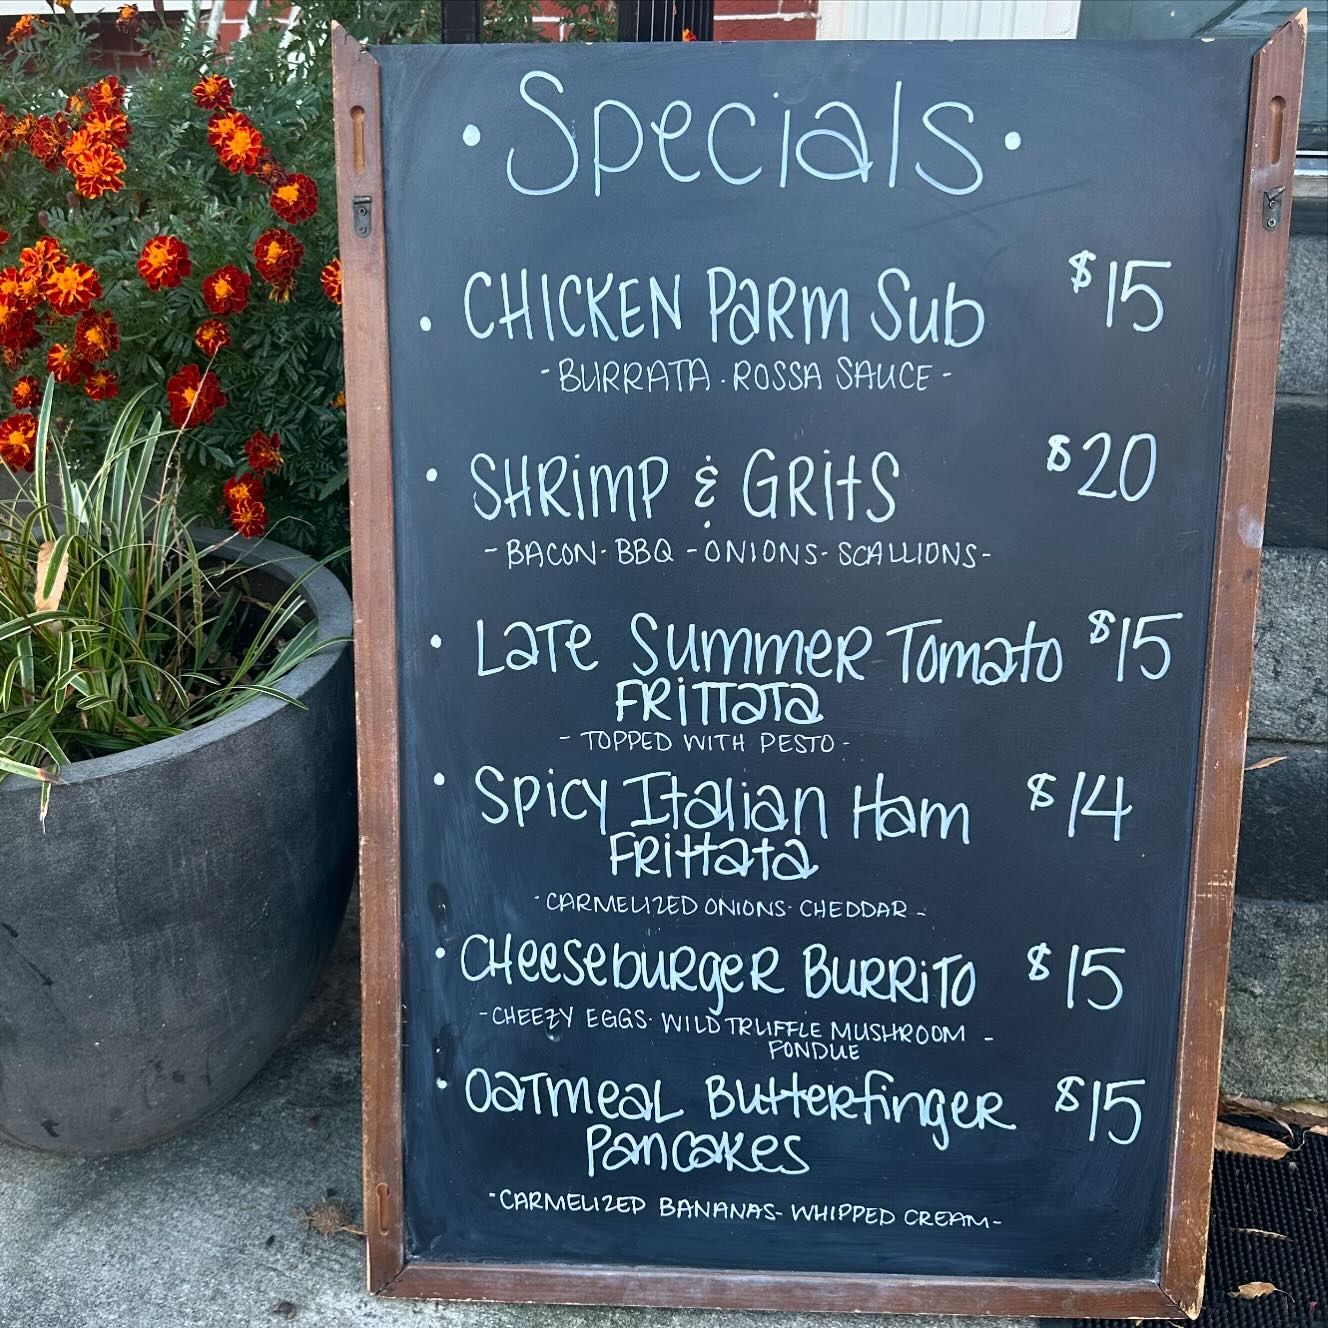 • Specials •
• CHICKEN PARM Sub $15
- BURRATA · ROSSA SAUCE -
• SHRiMP & GRitS $20
- BACON - BBQ - ONIONS - SCALLIONS -
• LaTe SummeR Tomato $15
FRiTTaTa
- TOPPED WITH PESTO -
• Spicy Italian Ham $14
FRittata
- CARMELIZED ONIONS - CHEDDAR -
• CHeeseburgeR BURRiTO $15
- CHEEZY EGGS · WILD TRUFFLE MUSHROOM -
FONDUE
• OaTmeaL ButteRfingeR $15
Pancakes
- CARMELIZED BANANAS - WHIPPED CREAM -